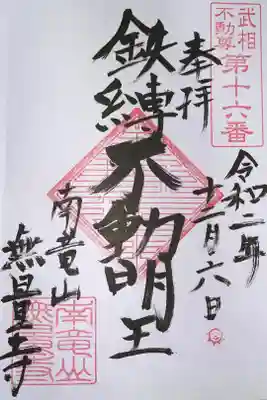 武相
不動尊
第十六番
奉拝
令和二年
十二月六日
鉄縛不動明王
南竜山
無量寺
南竜山
無量寺